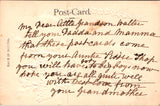 Post-Card.
My dear little grandson, Walter
tell you Dadda and Mamma
that these postcards come
from your Auntie Rose. I hope
you will have a happy new
hope you are all quite well
with love from
your grandmother